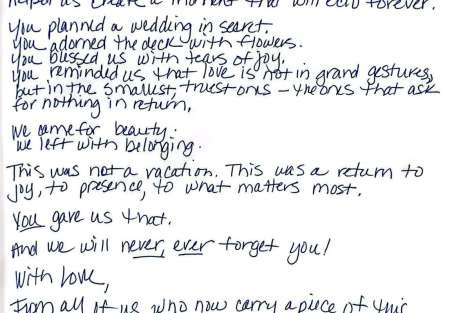 helped us create a moment that will echo forever.
You planned a wedding in secret.
You adorned the deck with flowers.
You bussed us with tears of joy.
You reminded us that love is not in grand gestures,
but in the smallest, truest ones - the ones that ask
for nothing in return.
We came for beauty.
We left with belonging.
This was not a vacation. This was a return to
joy, to presence, to what matters most.
You gave us that.
And we will never, ever forget you!
With Love,
From all of us who now carry a piece of this